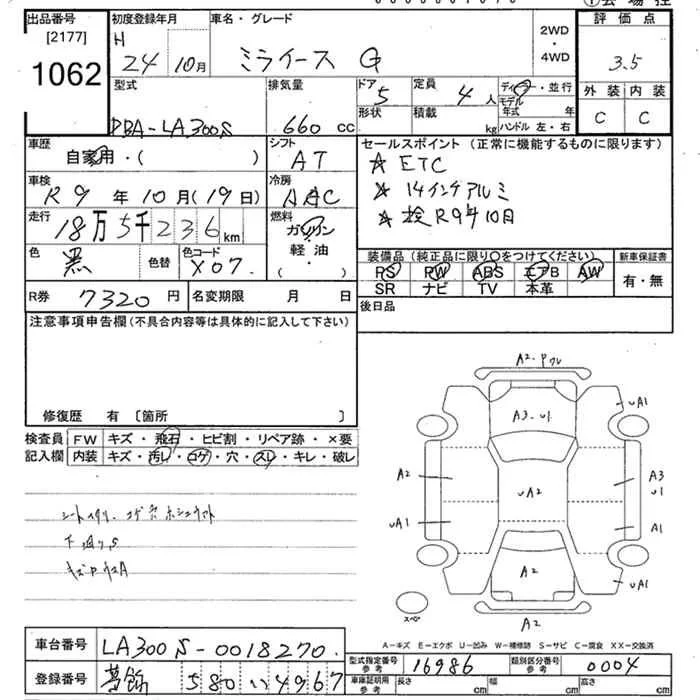 出品番号
[2177]
1062
初度登録年月
H
24 10月
車名・グレード
ミライース G
2WD
・
4WD
評価点
3.5
外装 内装
C C
型式
DBA-LA300S
排気量
660 cc
ドア
5
形状
定員
4 人
積載
kg
ディーラー・並行
モデル
年式 年
ハンドル 左・右
車歴
自家用・( )
シフト
AT
セールスポイント (正常に機能するものに限ります)
☆ ETC
☆ 14インチアルミ
☆ 検R9年10月
車検
R9 年 10月(19日)
冷房
AAC
走行
18万5千236 km
燃料
ガソリン
軽油
・( )
色
黒
色替
色コード
X07
装備品 (純正品に限り○をつけてください)
PS PW ABS エアB AW
SR ナビ TV 本革
新車保証書
有・無
R券 7320 円
名変期限 月 日
後日品
注意事項申告欄(不具合内容等は具体的に記入して下さい)
修復歴 有 〔箇所 〕
検査員
記入欄
FW キズ・飛石・ヒビ割・リペア跡・×要
内装 キズ・汚レ・コゲ・穴・スレ・キレ・破レ
下廻りS
A2
A3・U1
UA1
A2
UA2
A3
U1
UA1
A1
A2
UA1
スペア
A2
A-キズ E-エクボ U-凹み W-補修跡 S-サビ C-腐食 XX-交換済
車台番号 LA300S-0018270
型式指定番号
参考
16986
類別区分番号
参考
0004
登録番号 葛飾 580 い 4967
車庫証明用
参考
長さ cm
幅 cm
高さ cm